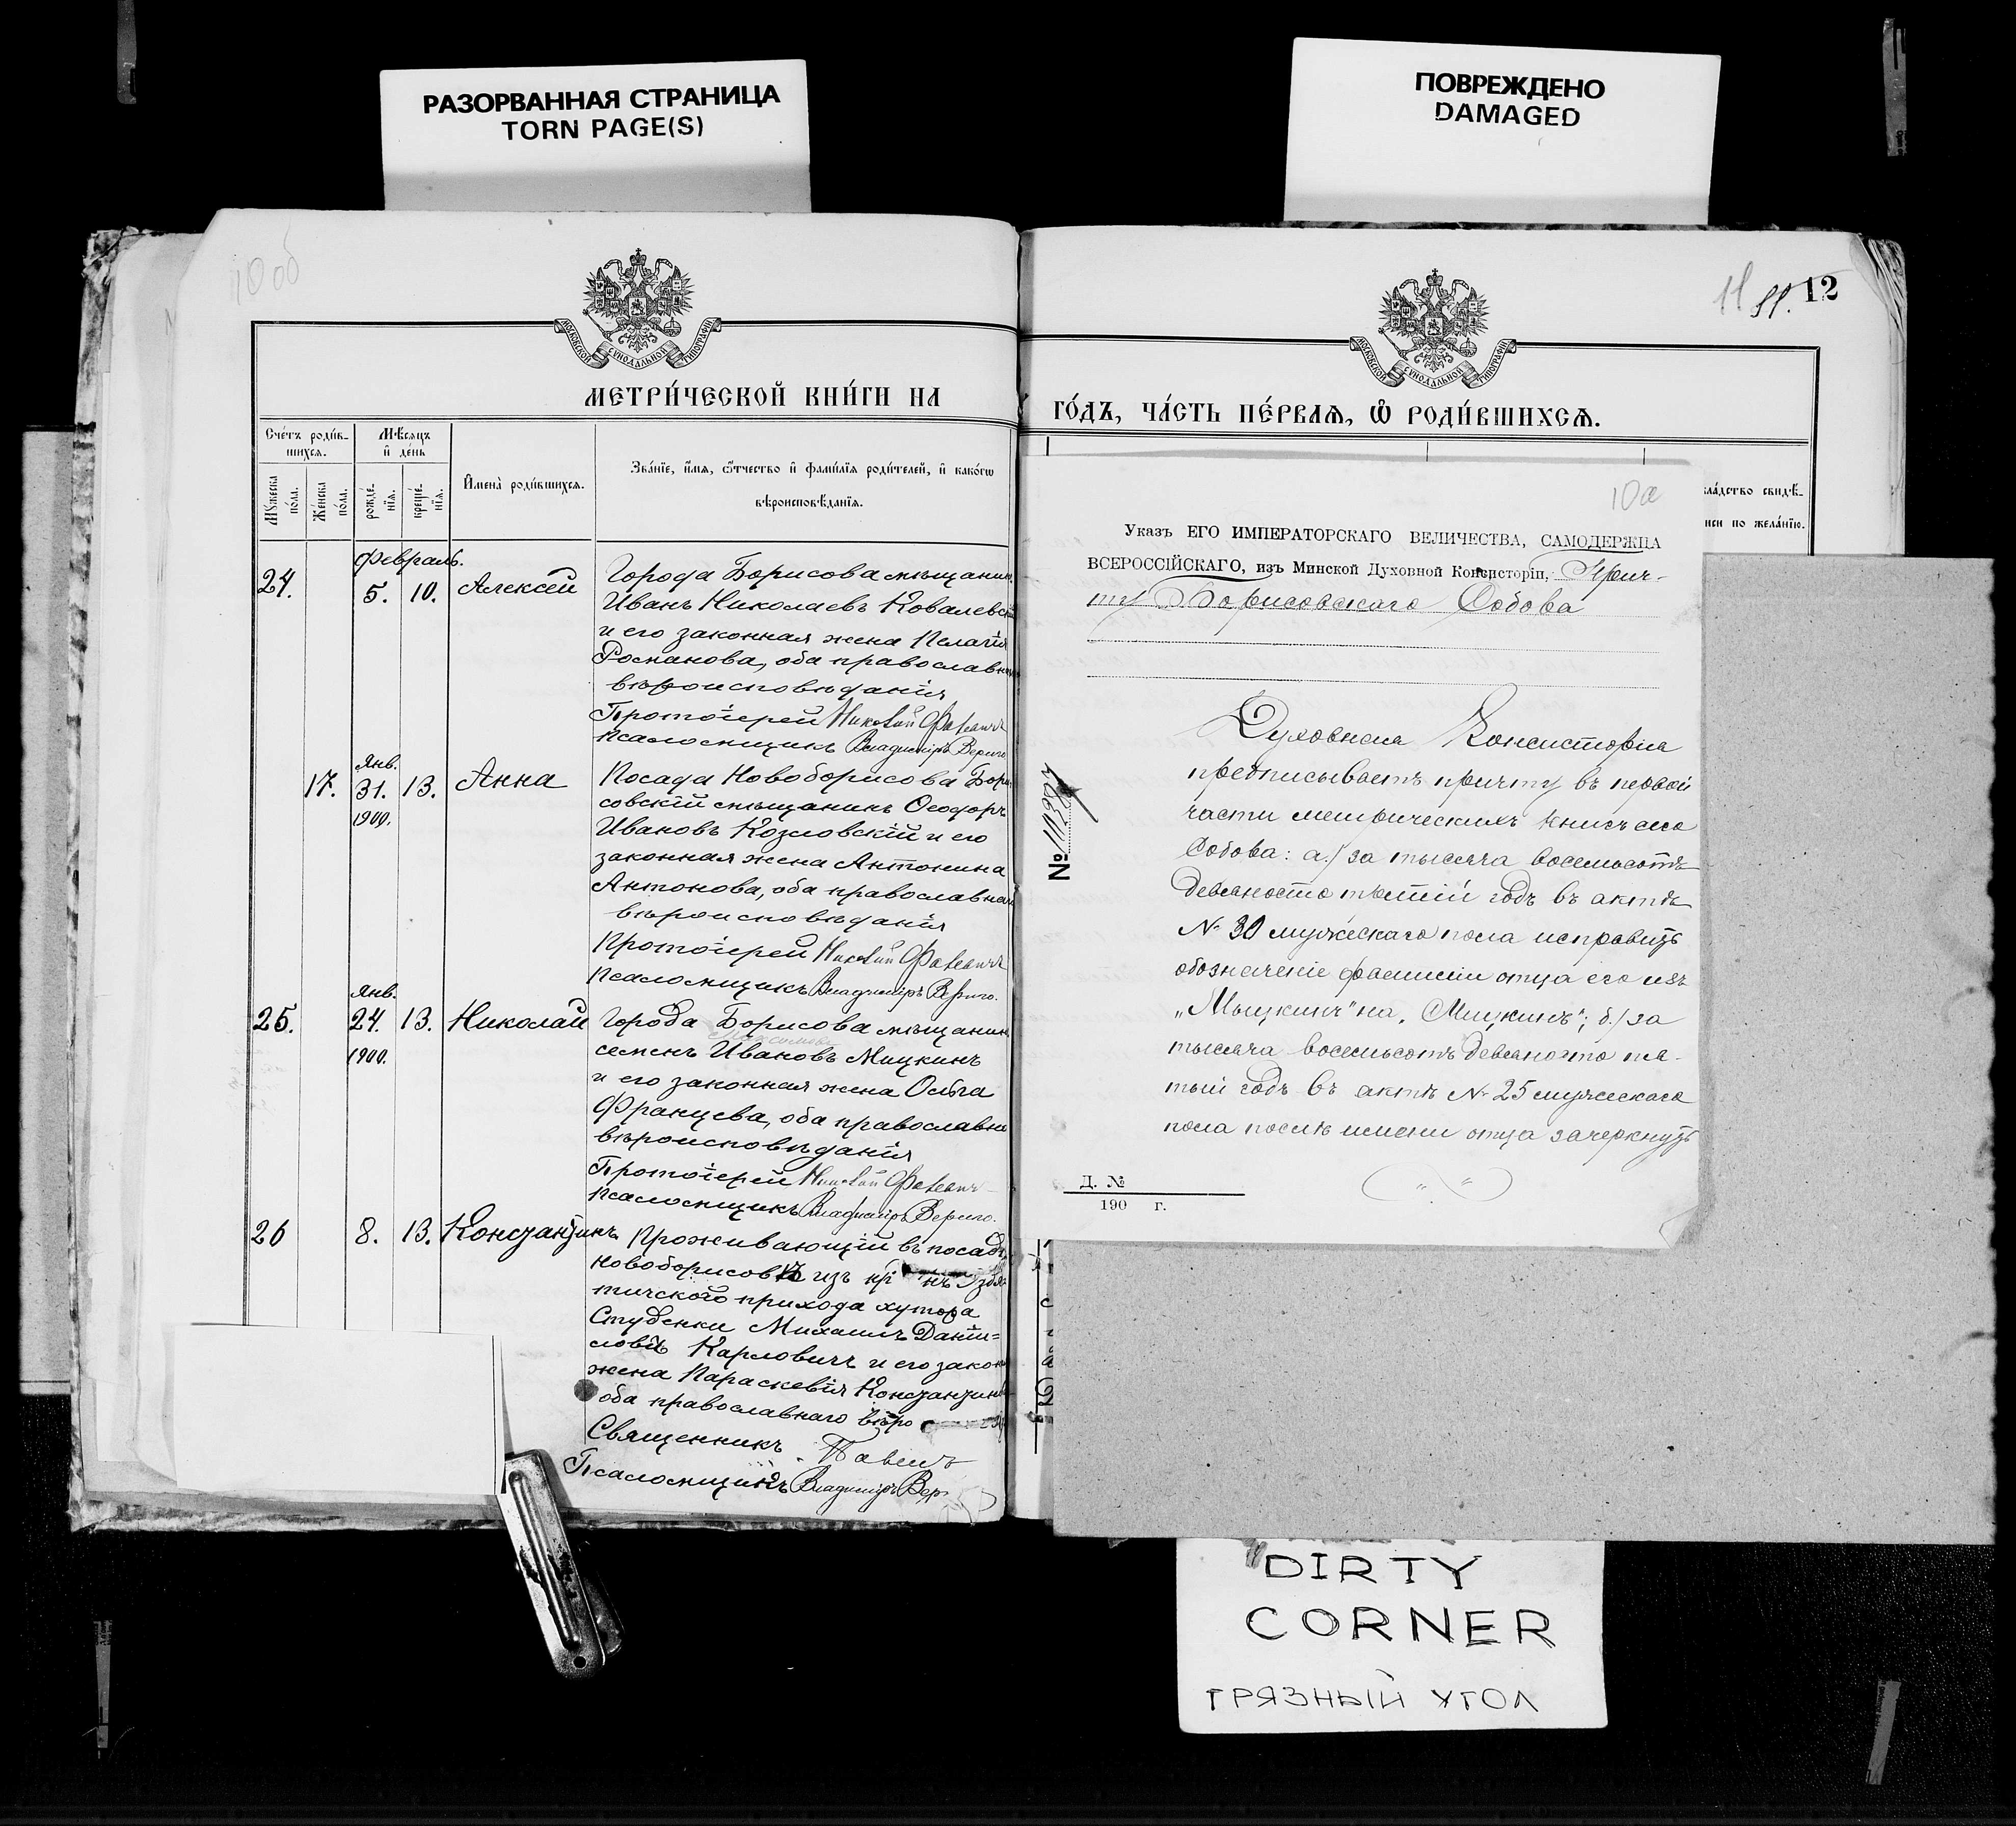 РАЗОРВАННАЯ СТРАНИЦА
TORN PAGE(S)
ПОВРЕЖДЕНО
DAMAGED
10 об
МОСКОВСКОЙ СѴНОДАЛЬНОЙ ТИПОГРАФІИ
МЕТРИ́ЧЕСКОЙ КНИ́ГИ НА
Сче́тъ роди́в-
шихся.
Мѣсяцъ
и де́нь
Мꙋжеска по́ла.
Же́нска по́ла.
рожде́-
нїя.
креще́-
нїя.
Имена̀ роди́вшихся.
Зва́нїе, и҆́мя, ѻ҆́тчество и҆ фами́лїя роди́телей, и҆ како́гѡ
вѣроисповѣ́данїя.
Февраль.
24. 5. 10. Алексѣй
Города Борисова мѣщанин
Иванъ Николаевъ Ковалевскі
и его законная жена Пелагія
Романова, оба православн
вѣроисповѣданія
Протоіерей Николай
Псаломщикъ Владиміръ Вериго
Янв.
17. 31. 13. Анна
1900.
Посада Новоборисова Бори
совскій мѣщанинъ Ѳеодоръ
Ивановъ Козловскій и его
законная жена Антонина
Антонова, оба православна
вѣроисповѣданія
Протоіерей Николай
Псаломщикъ Владиміръ Вериго.
Янв.
25. 24. 13. Николай
1900.
Города Борисова мѣщанинъ
семенъ Ивановъ Мицкинъ
и его законная жена Ольга
Францева, оба православна
вѣроисповѣданія
Протоіерей Николай
Псаломщикъ Владиміръ Вериго.
26 8. 13. Константинъ
Проживающій въ посадѣ
Новоборисовѣ изъ
тичского прихода хутора
Студенки Михаилъ Дани=
ловъ Карловичъ и его закон
жена Параскевія Константинов
оба православнаго вѣро
Священникъ Павелъ
Псаломщикъ Владиміръ Вер
11 11. 12
МОСКОВСКОЙ СѴНОДАЛЬНОЙ ТИПОГРАФІИ
ГО́ДЪ, ЧА́СТЬ ПЕ́РВАѦ, Ѽ РОДИ́ВШИХСѦ.
ла́дство свидѣ-
иси по жела́нїю.
10а
Указъ ЕГО ИМПЕРАТОРСКАГО ВЕЛИЧЕСТВА, САМОДЕРЖЦА
ВСЕРОССІЙСКАГО, изъ Минской Духовной Консисторіи, Прич-
ту Борисовскаго Собора
Духовная Консисторія
предписываетъ причту въ первой
части метрическихъ книгъ сего
Собора: а.) за тысяча восемьсотъ
девяносто третій годъ въ актѣ
№ 30 мужескаго пола исправить
обозначеніе фамиліи отца его изъ
„Мыцкинъ" на „Мицкинъ"; б.) за
тысяча восемьсотъ девяносто пя-
тый годъ въ актѣ № 25 мужескаго
пола послѣ имени отца зачеркнуть
№
Д. №
190 г.
DIRTY
CORNER
ГРЯЗНЫЙ УГОЛ